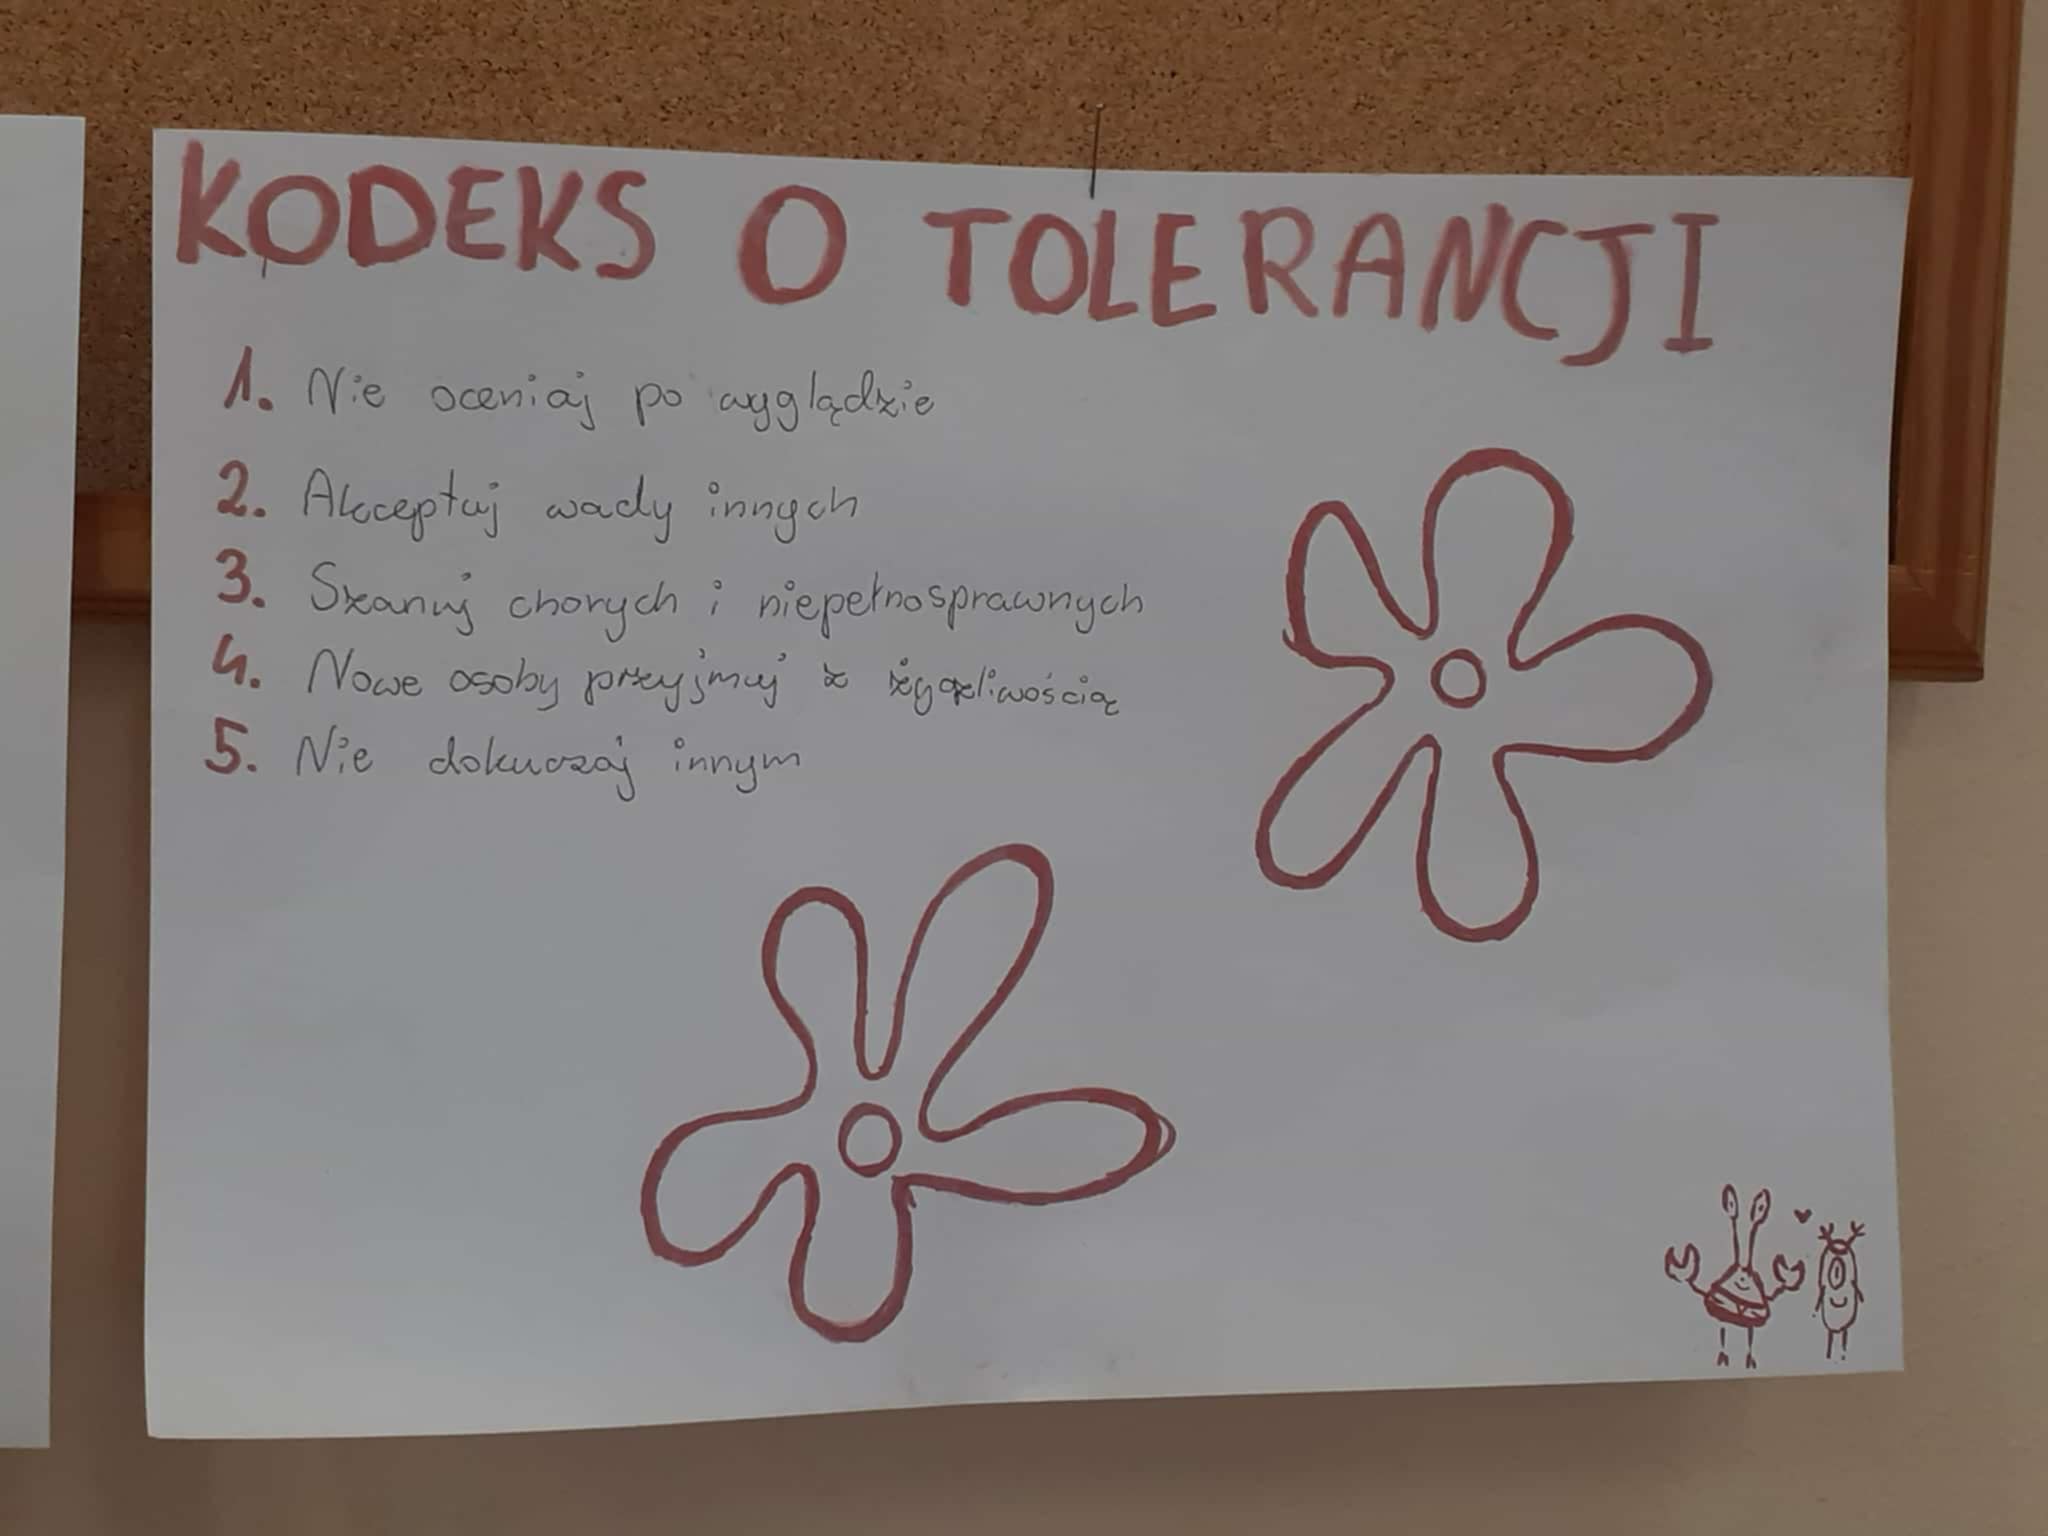 KODEKS O TOLERANCJI
1. Nie oceniaj po wyglądzie
2. Akceptuj wady innych
3. Szanuj chorych i niepełnosprawnych
4. Nowe osoby przyjmuj z życzliwością
5. Nie dokuczaj innym